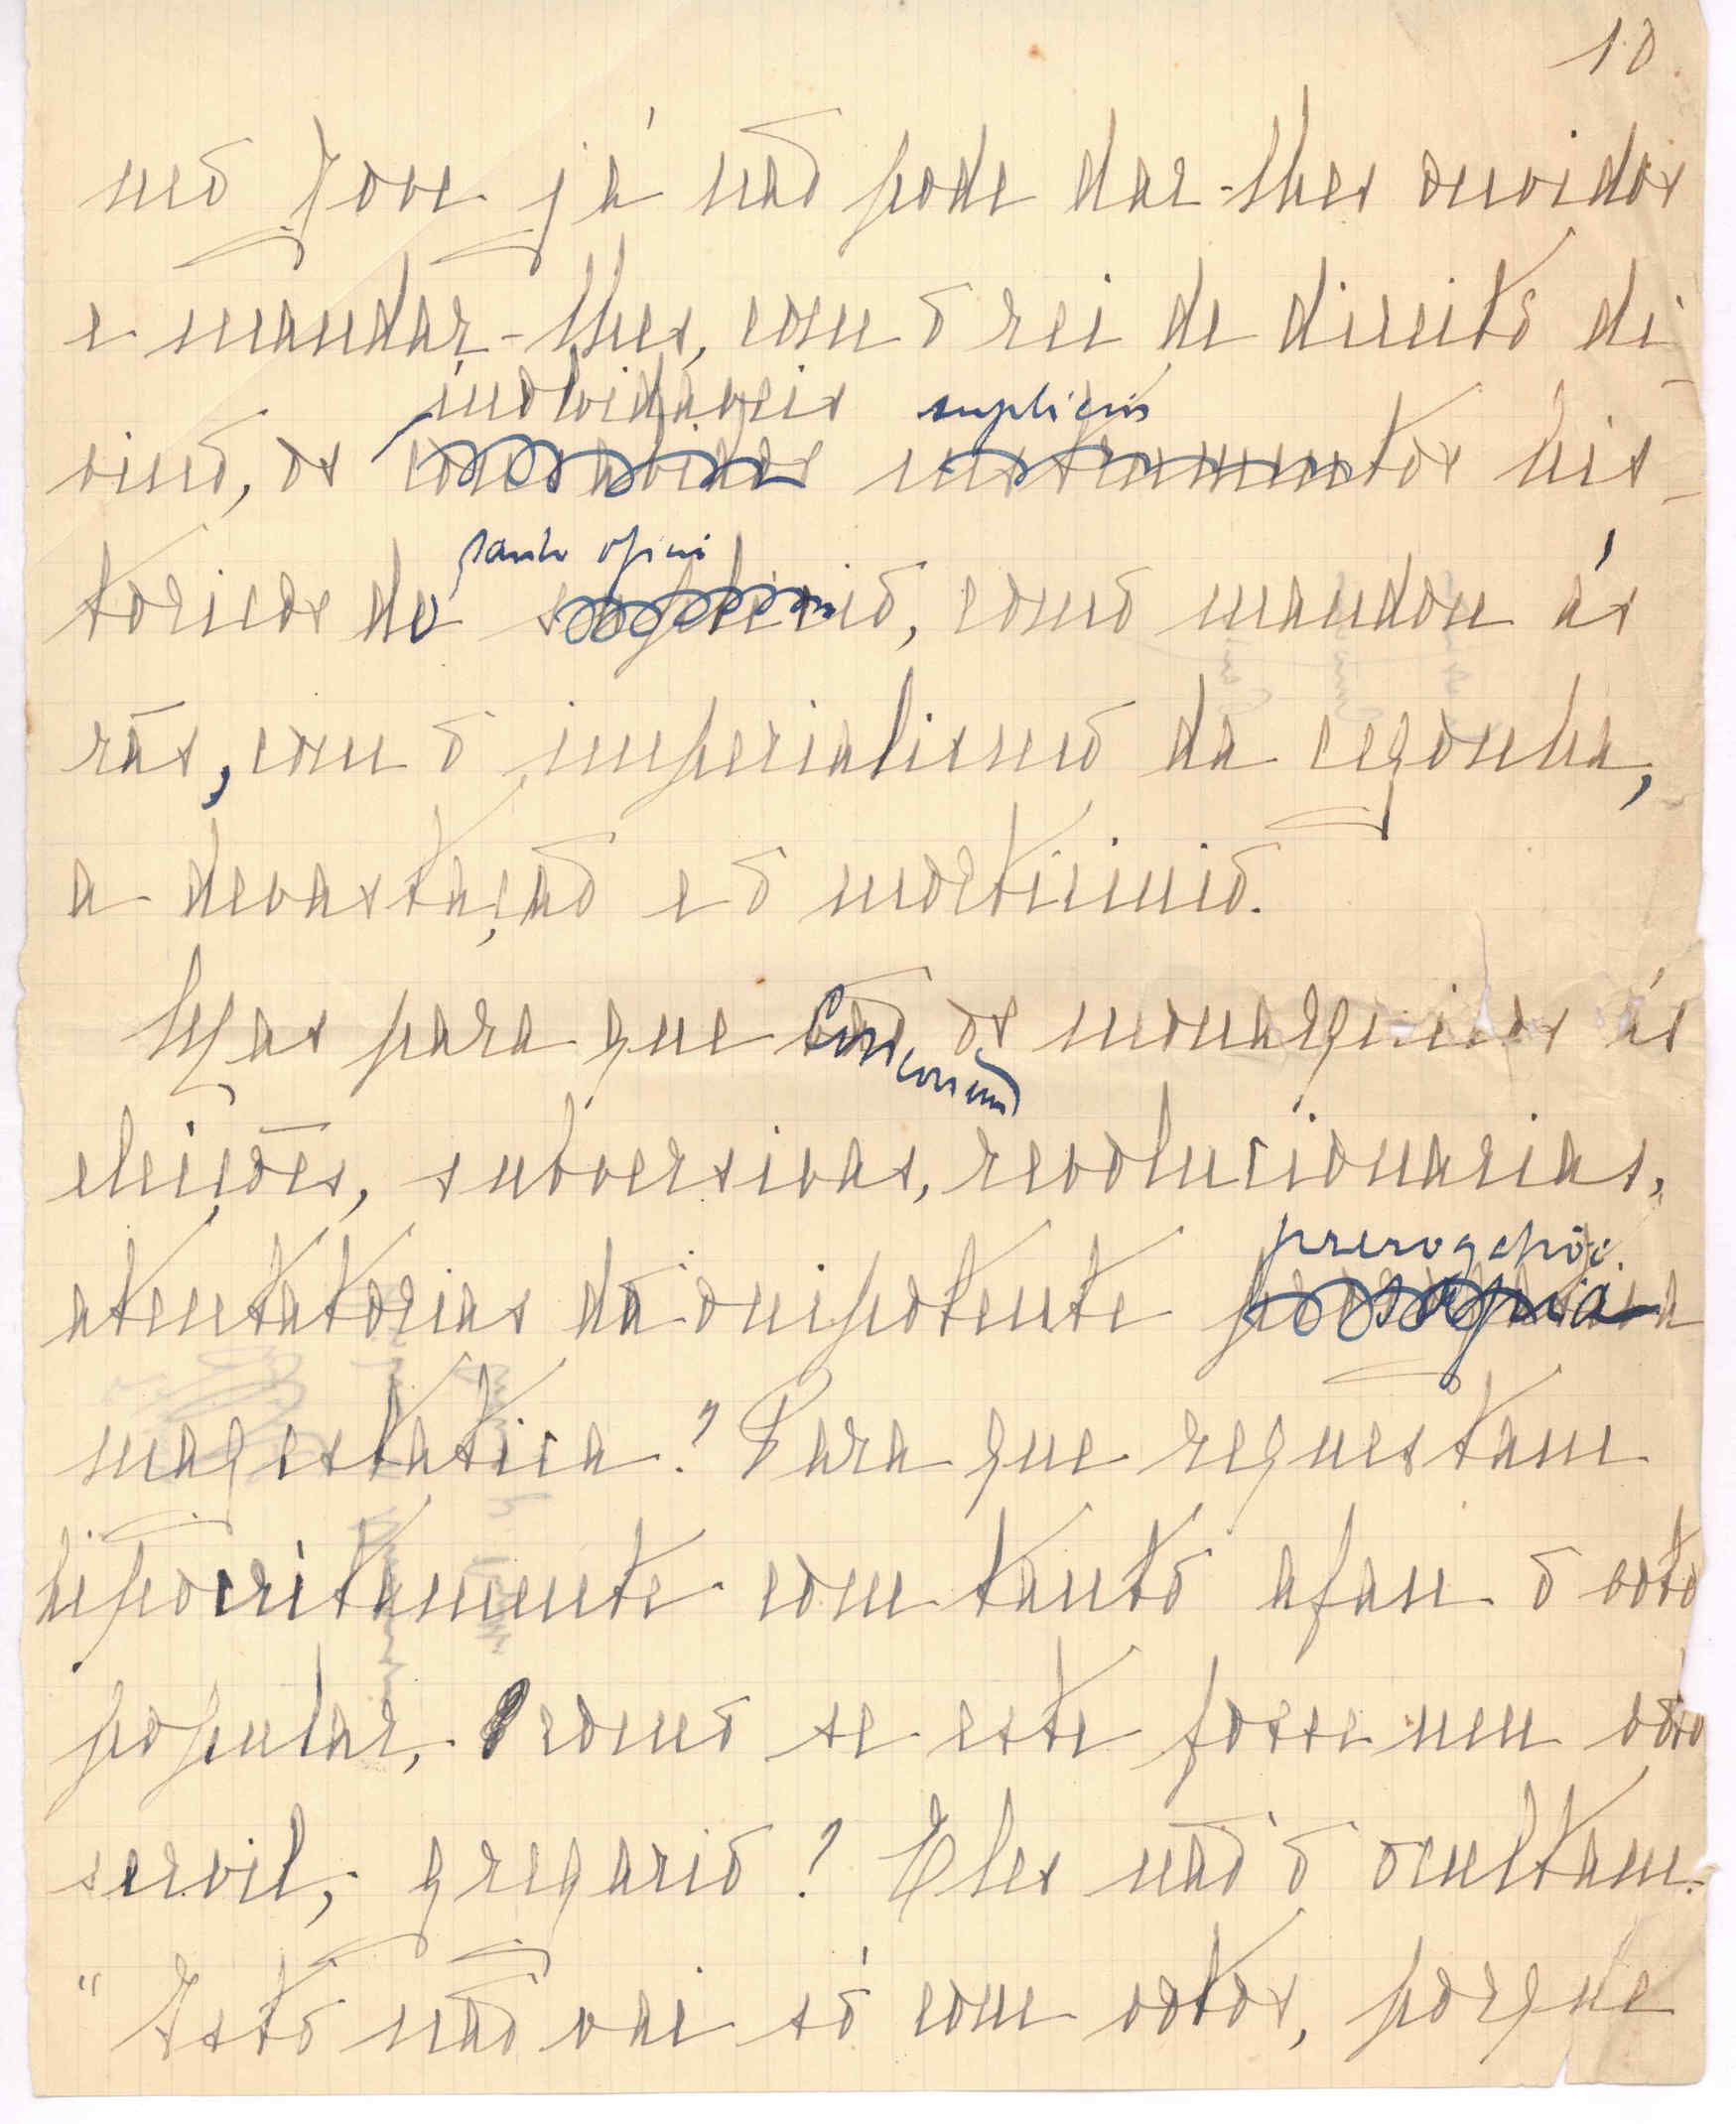 10
mo Jove já não pode dar-lhes ouvidos
e mandar-lhes, com o rei de direito di-
inolvidaveis suplicios
vino, os instrumentos his-
santo oficio
toricos do suplicio, como mandou ás
rãs, com o imperialismo da cegonha,
a devastação e o morticinio.
Mas para que vão os monarquicos ás
concorrem
eleições, subversivas, revolucionarias,
atentatorias da onipotente prosapia
magestatica? Para que requestam
hipocritamente com tanto afan o voto
popular, como se este fosse um voto
servil, gregario? Eles não o ocultam.
"Isto não vae só com votos, porque